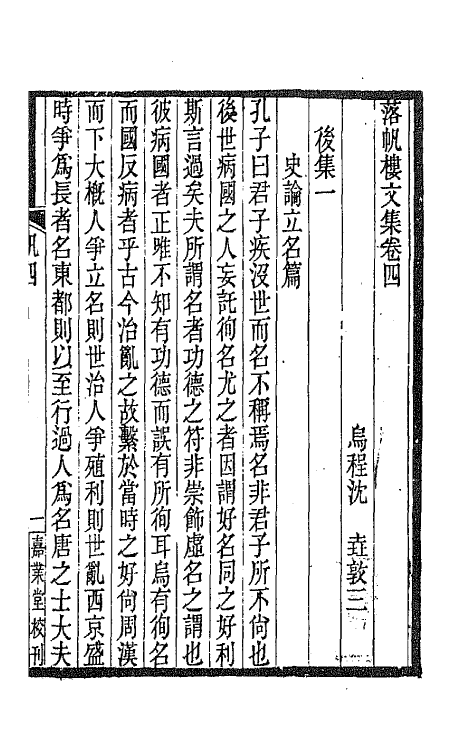 落帆樓文集卷四
烏程沈　垚敦三
後集一
史論立名篇
孔子曰君子疾沒世而名不稱焉名非君子所不尙也
後世病國之人妄託徇名尤之者因謂好名同之好利
斯言過矣夫所謂名者功德之符非崇飾虛名之謂也
彼病國者正唯不知有功德而誤有所徇耳烏有徇名
而國反病者乎古今治亂之故繫於當時之好尙周漢
而下大概人爭立名則世治人爭殖利則世亂西京盛
時爭爲長者名東都則以至行過人爲名唐之士大夫
帆四
一
嘉業堂校刊